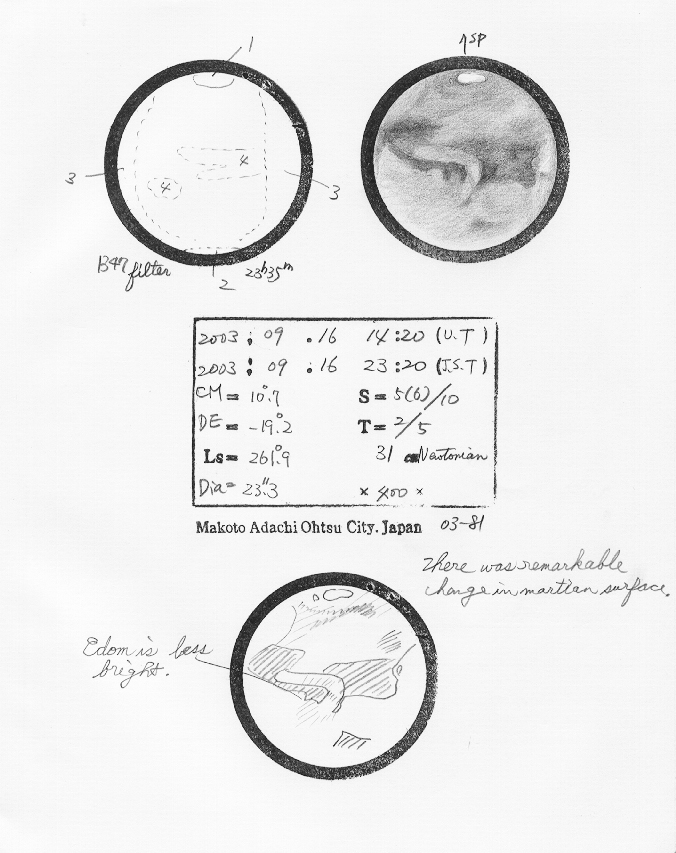 1
↑SP
3
4
4
3
B47 filter
2
23h35m
2003 : 09 . 16 14:20 (U.T)
2003 : 09 . 16 23:20 (J.S.T)
CM = 10°.7 S = 5(6)/10
DE = -19°.2 T = 2/5
Ls = 261°.9 31 Newtonian
Dia = 23".3 × 400 ×
Makoto Adachi Ohtsu City. Japan 03-81
There was remarkable
change in martian surface.
Edom is less
bright.